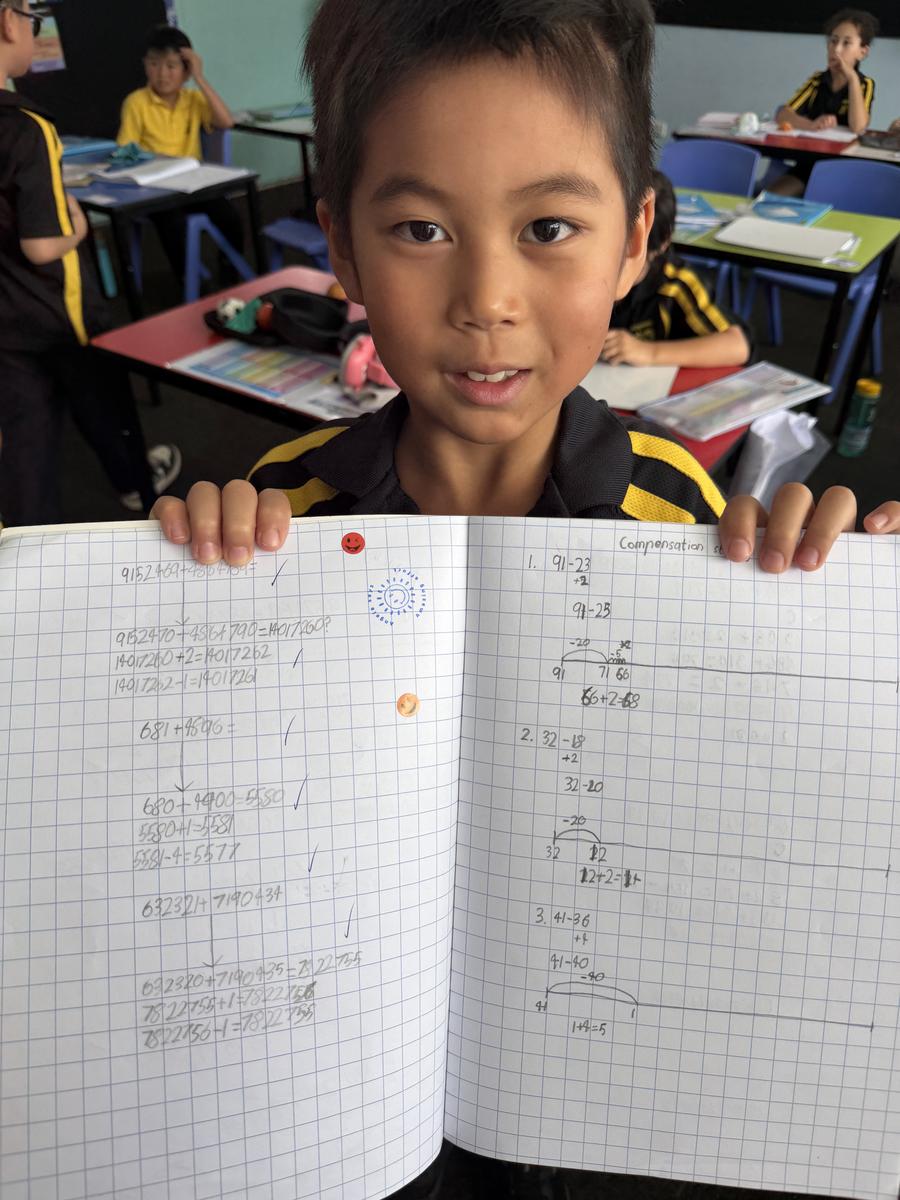 9152469+4864789=
9152470+4864790=14017260?
14017260+2=14017262
14017262-1=14017261
681+4896=
680+4900=5580
5580+1=5581
5581-4=5577
632321+7190434
632320+7190435=7822755
7822755+1=7822756
7822756-1=7822755
Compensation
1. 91-23
+2
91-25
-20
-5
91
71
66
66+2=68
2. 32-18
+2
32-20
-20
32
12
12+2=14
3. 41-36
+4
41-40
-40
41
1
1+4=5